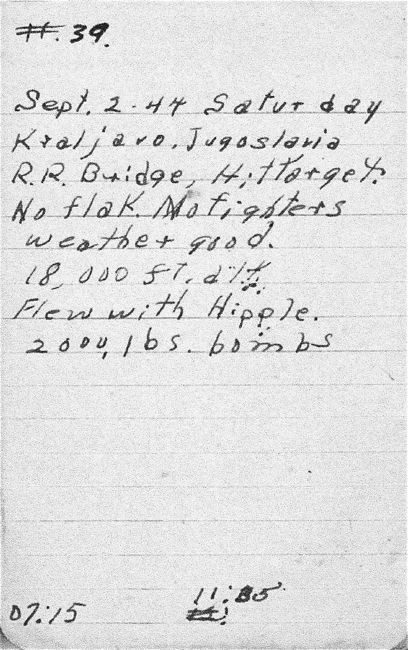 #. 39.
Sept. 2-44 Saturday
Kraljavo, Jugoslavia
R.R. Bridge, Hit Target.
No flak. No fighters
weather good.
18,000 ft. alt.
Flew with Hipple.
2000, lbs. bombs
11:35
07:15